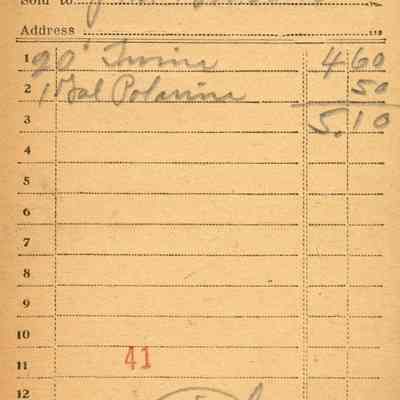 Sold to
Address
1 20' Twine 4 60
2 1 Gal Polarine 50
3 5.10
4
5
6
7
8
9
10
11 41
12